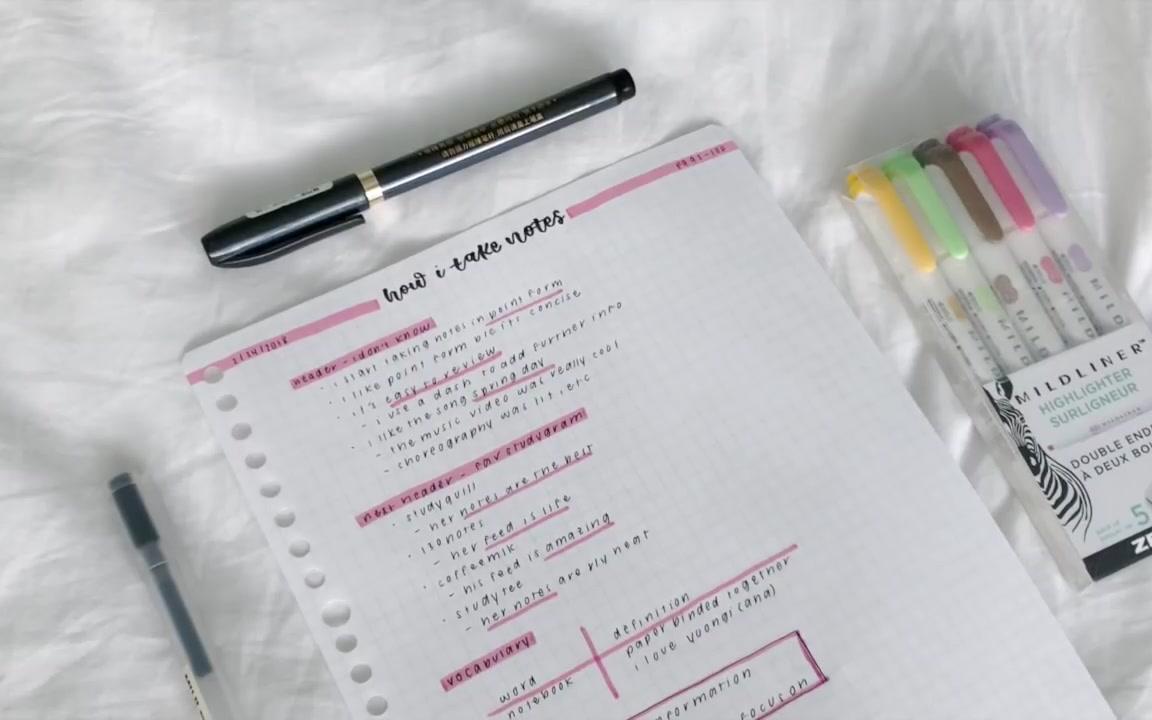 how i take notes
pg 91-102
2/14/2018
header - i don't know
· i start taking notes in point form
· i like point form b/c its concise
· it's easy to review
- i use a dash to add further info
· i like the song spring day
- the music video was really cool
- choreography was lit, etc
next header - fav studygram
· studyquill
- her notes are the best
· 130notes
- her feed is life
· coffeemik
- his feed is amazing
· studytee
- her notes are rly neat
vocabulary
word
definition
notebook
paper binded together
i love yoongi (and)
formation
focus on
MILDLINER™
HIGHLIGHTER
SURLIGNEUR
DOUBLE END
A DEUX BO
5
ZE